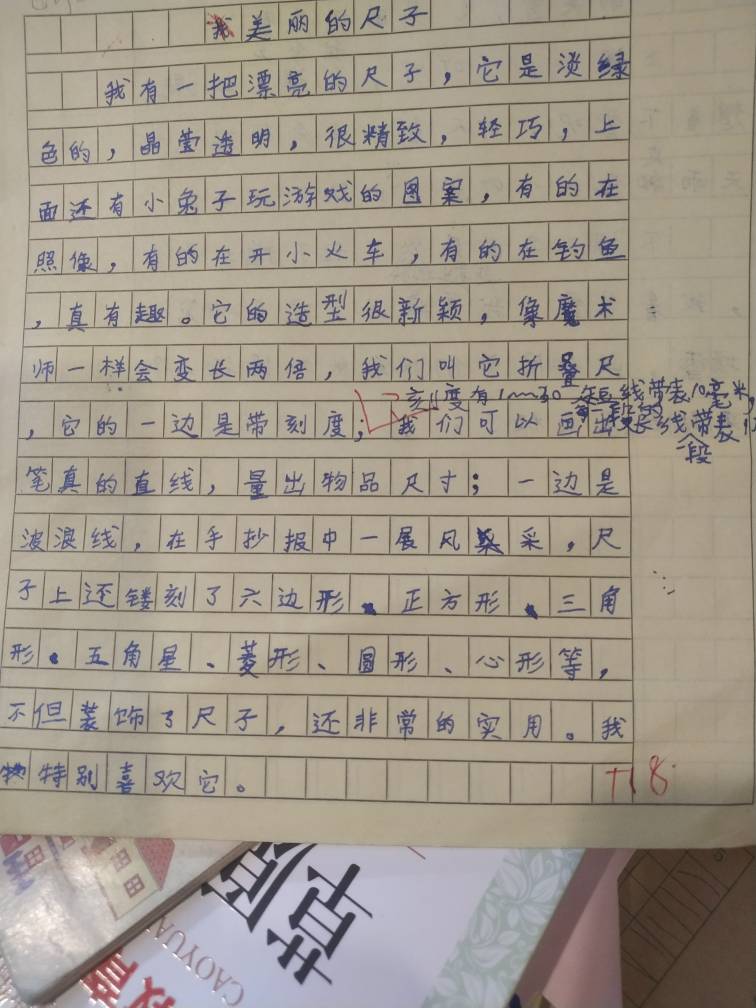 美丽的尺子
我有一把漂亮的尺子，它是淡绿
色的，晶莹透明，很精致，轻巧，上
面还有小兔子玩游戏的图案，有的在
照像，有的在开小火车，有的在钓鱼
，真有趣。它的造型很新颖，像魔术
师一样会变长两倍，我们叫它折叠尺
刻度有1~30 短线带表10毫米，
，它的一边是带刻度；我们可以画出
长线带表
一段
笔真的直线，量出物品尺寸；一边是
波浪线，在手抄报中一展风采，尺
子上还镂刻了六边形、正方形、三角
形、五角星、菱形、圆形、心形等，
不但装饰了尺子，还非常的实用。我
特别喜欢它。
+18
CAOYUAN